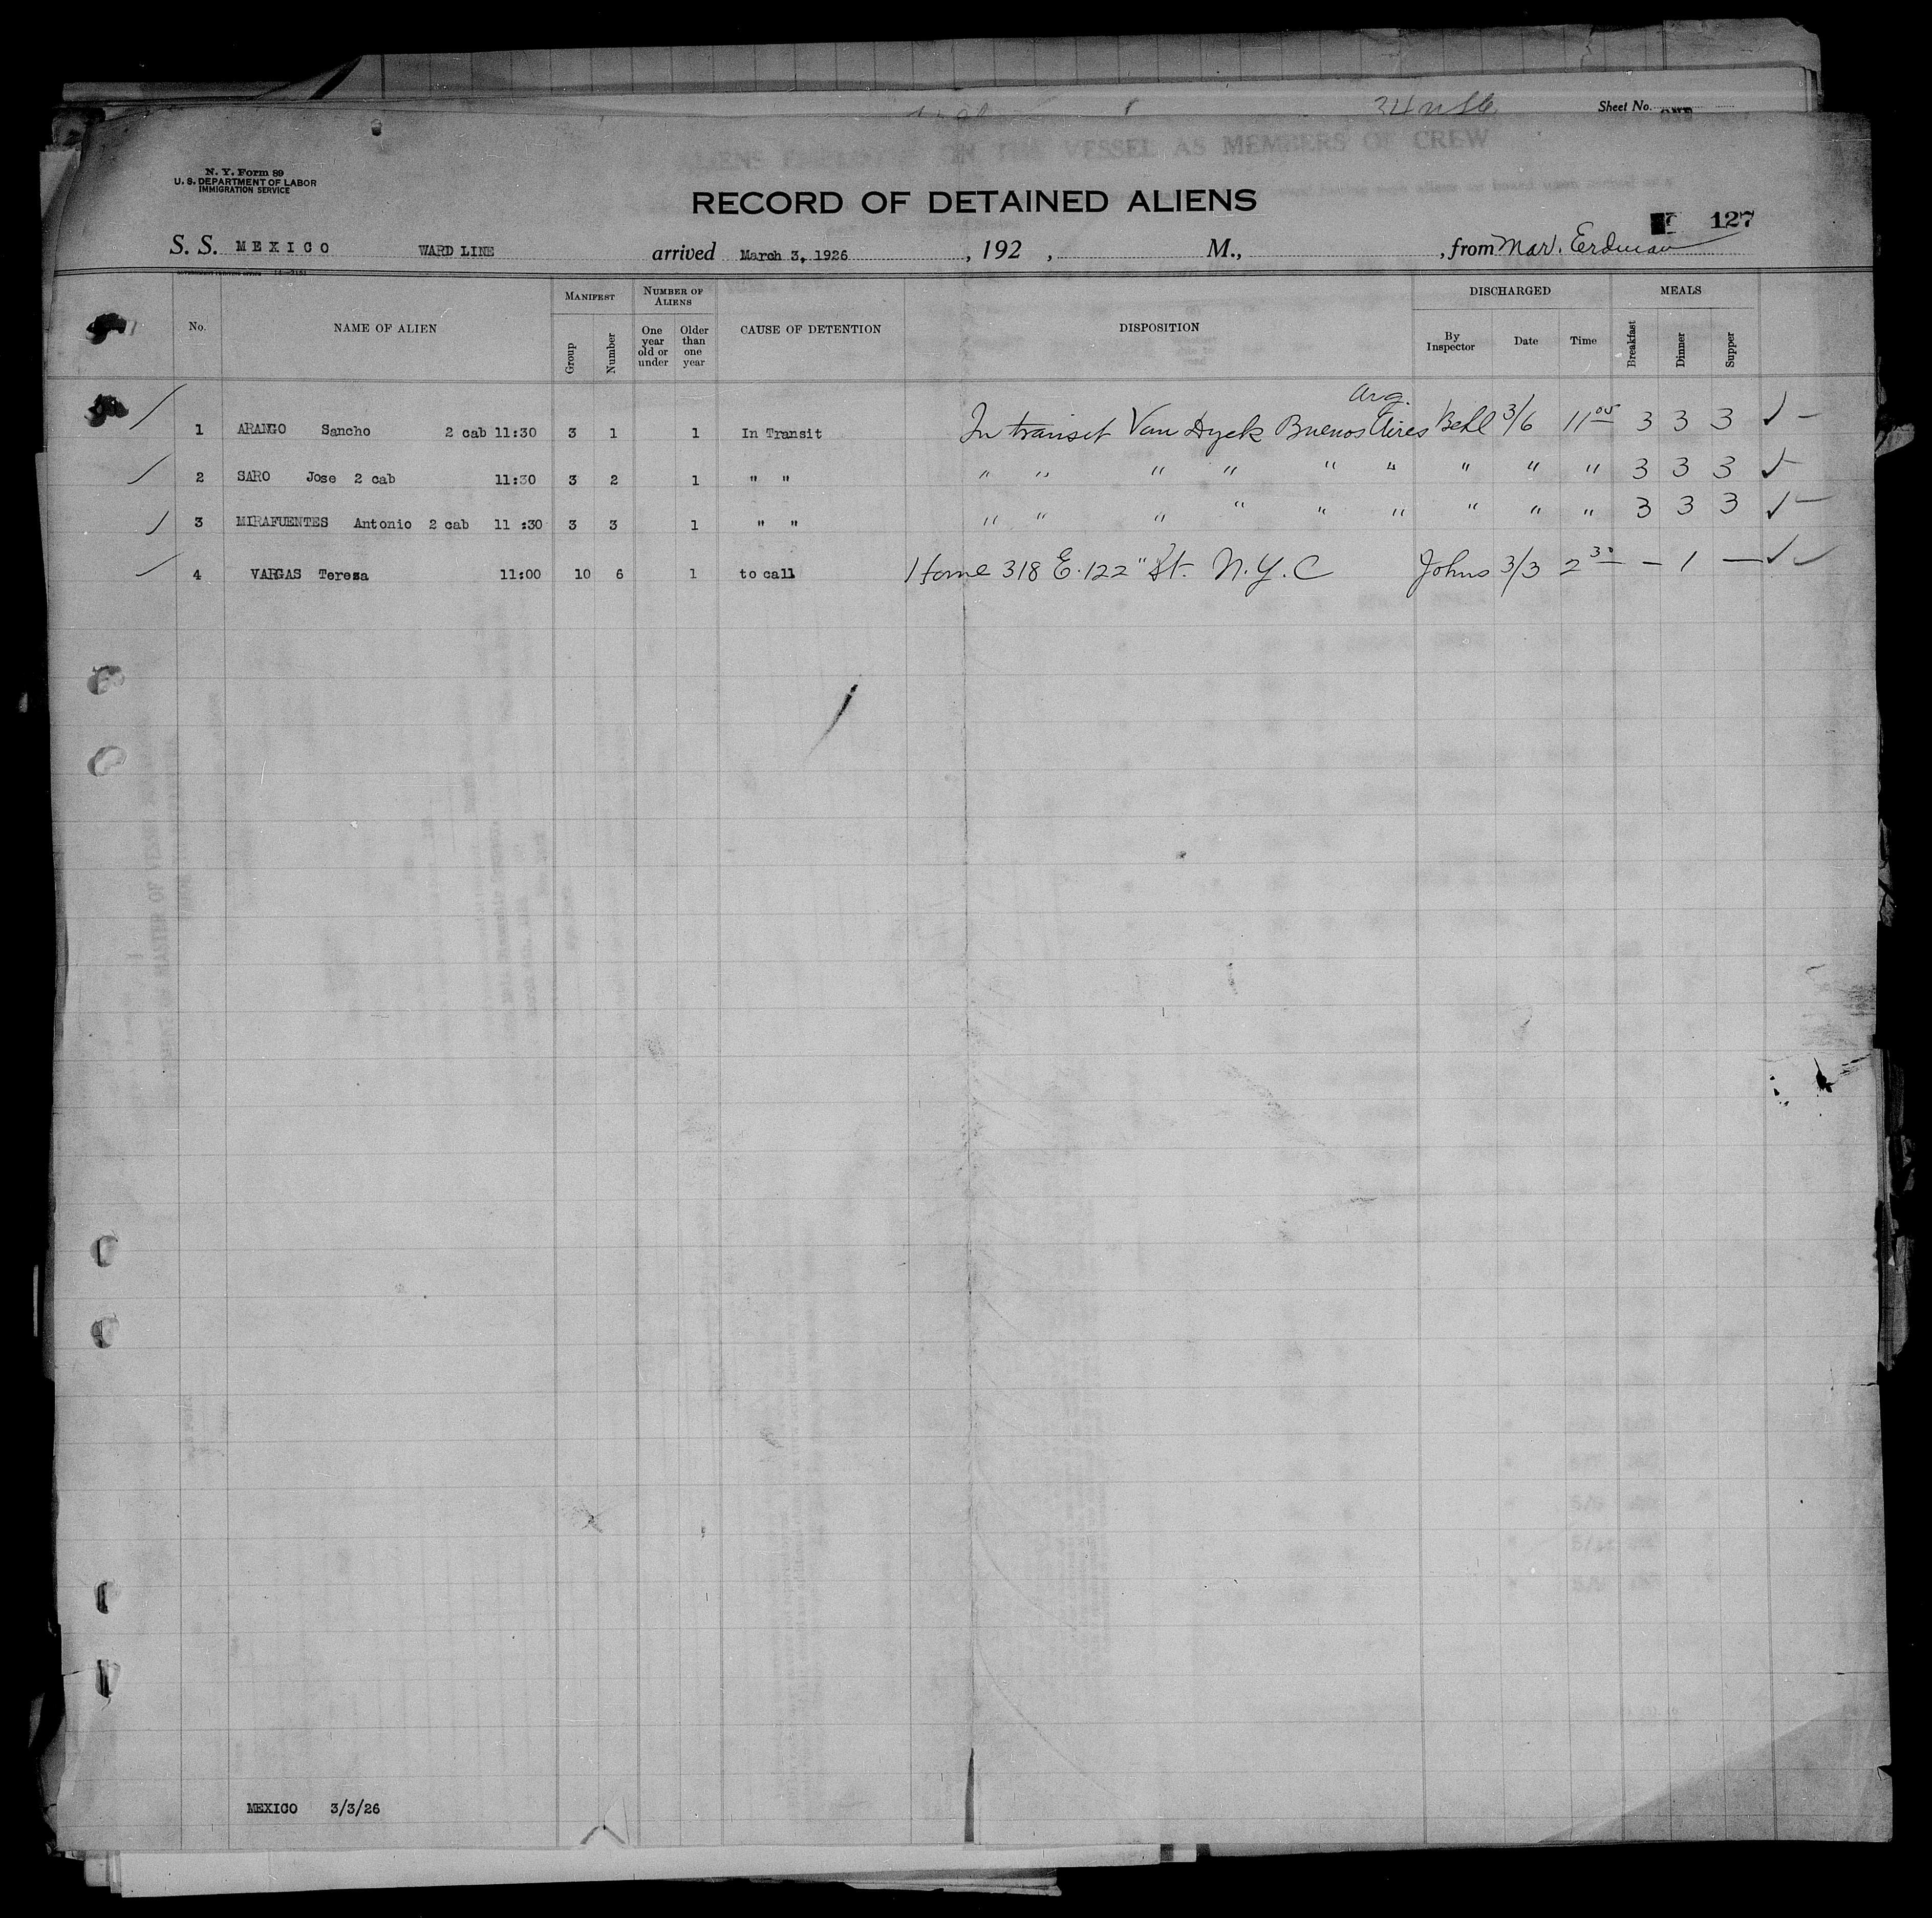 Sheet No.
ALIENS EMPLOYED ON THE VESSEL AS MEMBERS OF CREW
N. Y. Form 89
U. S. DEPARTMENT OF LABOR
IMMIGRATION SERVICE
RECORD OF DETAINED ALIENS
127
S. S. MEXICO WARD LINE arrived March 3, 1926, 192 , M., , from Mar. Erdman
No. NAME OF ALIEN MANIFEST Group Number NUMBER OF ALIENS One year old or under Older than one year CAUSE OF DETENTION DISPOSITION DISCHARGED By Inspector Date Time MEALS Breakfast Dinner Supper
Arg.
1 ARANGO Sancho 2 cab 11:30 3 1 1 In Transit In transit Van Dyck Buenos Aires 3/6 11 00 3 3 3 ✓ –
2 SARO Jose 2 cab 11:30 3 2 1 " " " " " " " " " " " 3 3 3 ✓
3 MIRAFUENTES Antonio 2 cab 11 :30 3 3 1 " " " " " " " " " " " 3 3 3 ✓ –
4 VARGAS Teresa 11:00 10 6 1 to call Home 318 E. 122" St. N.Y.C Johns 3/3 2 30 – 1 – ✓ ✓
MEXICO 3/3/26